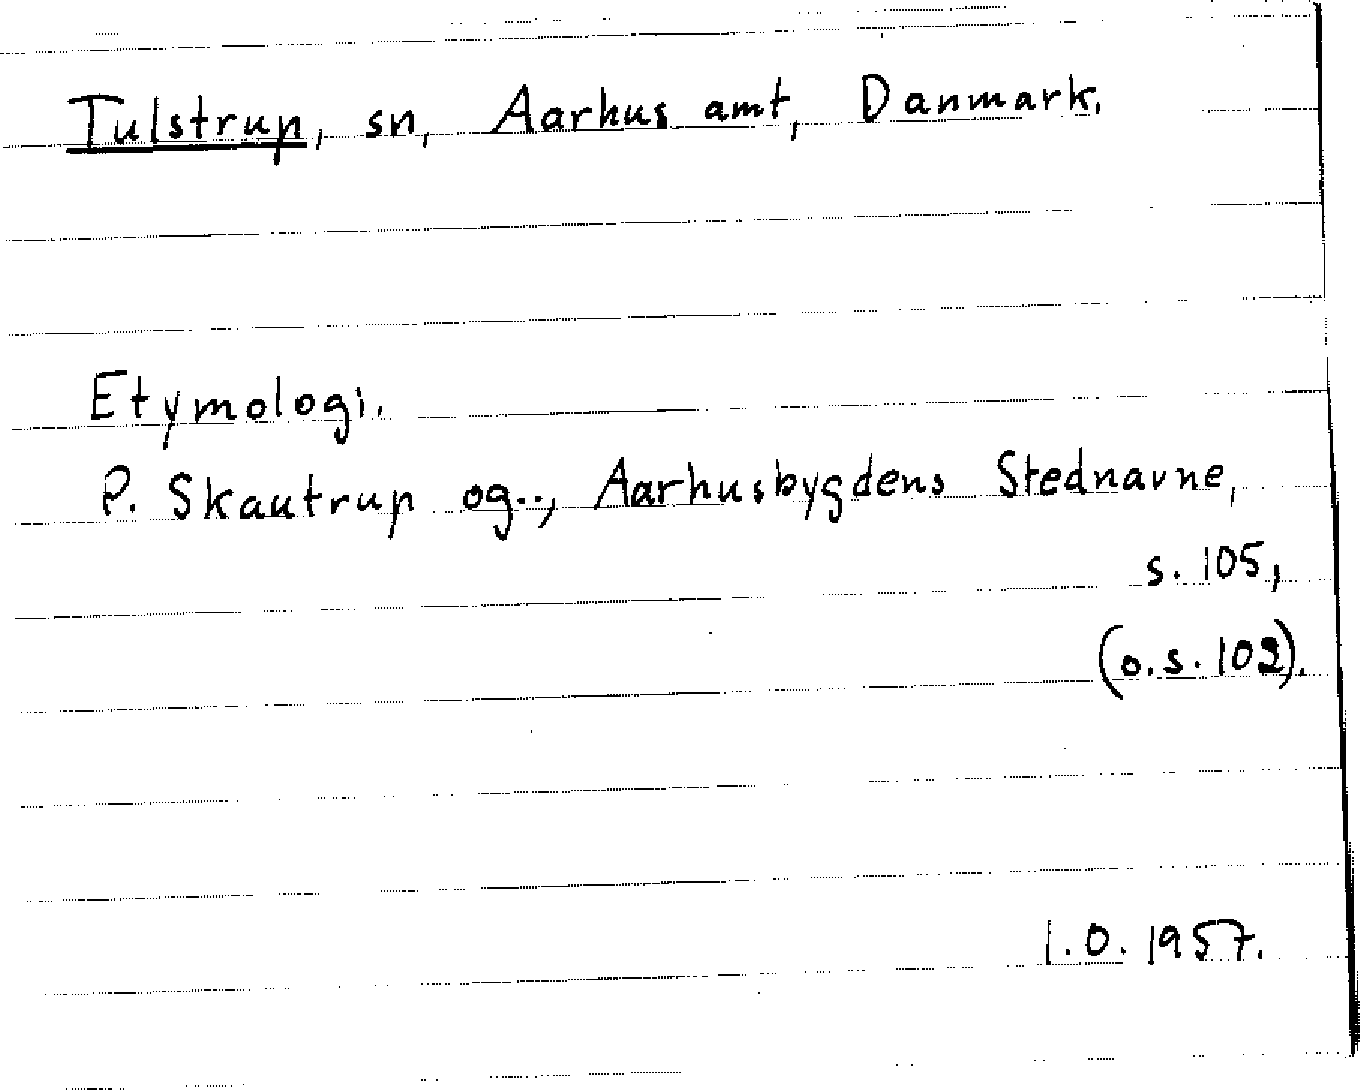 Tulstrup, sn, Aarhus amt, Danmark.
Etymologi.
P. Skautrup og.., Aarhusbygdens Stednavne,
s. 105,
(o.s. 102).
1.0. 1957.